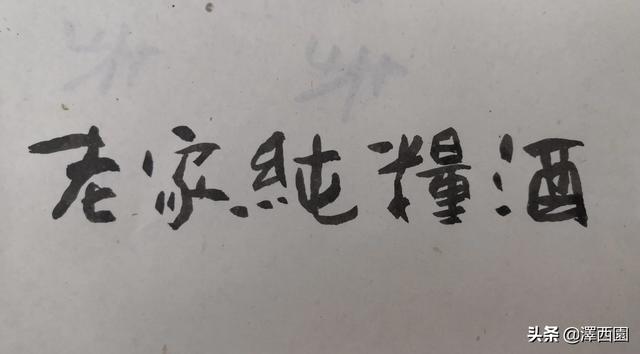 老家純糧酒
头条 @澤西園